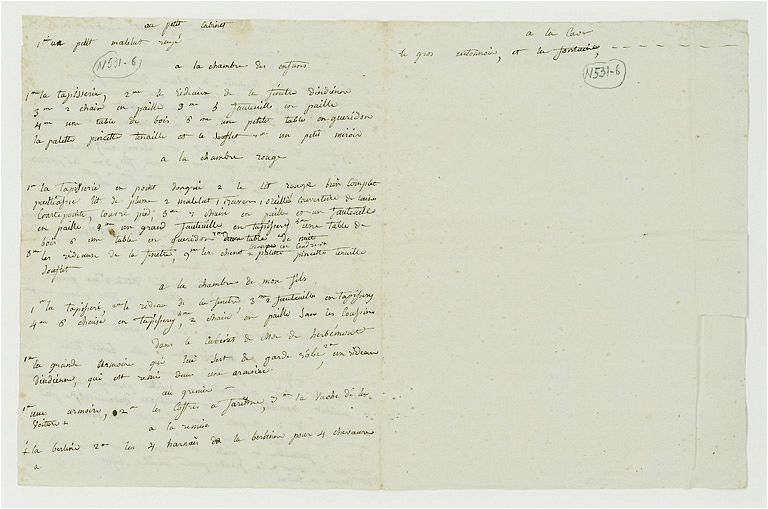 au petit cabinet
1 un petit matelat rayé
N531-6
a la chambre des enfans
1 la tapisserie, 2 le rideaux de la fenetre d'indienne
3 2 chais en paille 3 fauteuille en paille
4 une table de bois 5 une petite table en gueridon
la palette pincette tenaille et le souflet un petit miroir
a la chambre rouge
1 la tapisserie en point dongrie 2 le lit rouge bien complet
paillasse lit de plume 2 matelat 1 traver 1 oreillé couverture de
courtepointe, couvre pied 3 chais en paille et un fauteuille
en paille un grand fauteuille en tapissery une table de
bois 6 une table en gueridon table de nuit
8 les rideaux de la fenetre, 9 les chenet palette pincette tenaille
souflet
a la chambre de mon fils
1 la tapisseri, le rideau de la fenetre 3 2 fauteuille en tapissery
4 6 chaise en tapissery, 2 chais en paille sans les coussins
dans le cabinet de Mr de herbemont
1 la grande armoire qui lui sert de garde robe, 2 un rideau
d'indienne, qui est remis dans une armoire
au grenier
1 une armoire, 2 les coffres a farine, 3 la vache de la
voiture
a la remise
la berline 2 les 4 harnais de la berline pour 4 chevaux
a
a la Cave
le gros entonnoir, et la fontaine,
N531-6